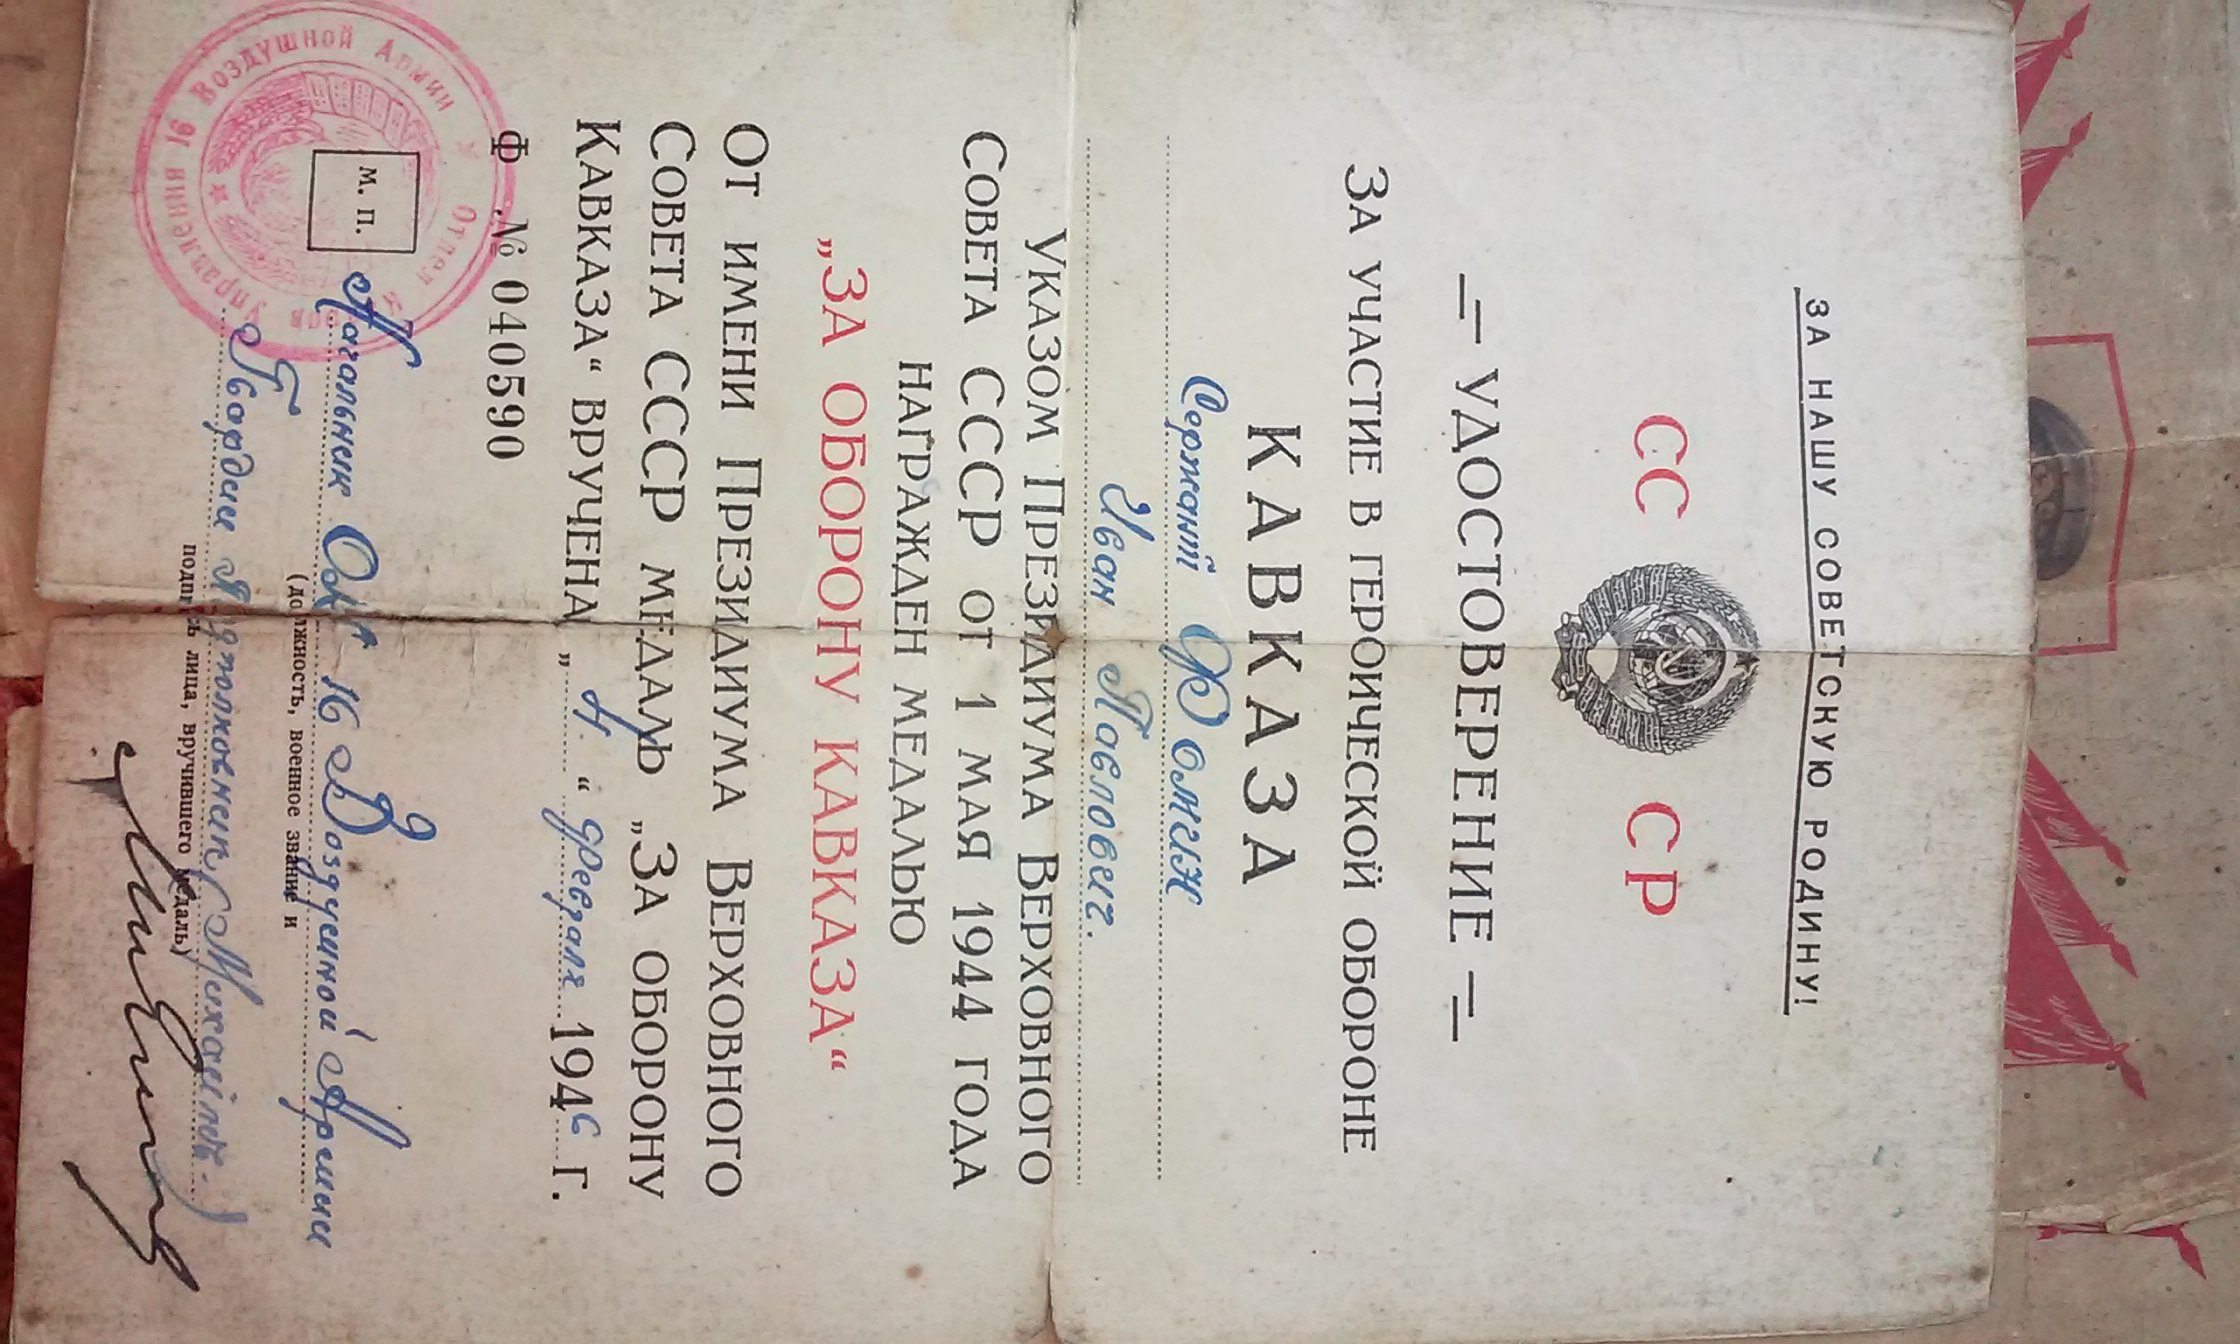 ЗА НАШУ СОВЕТСКУЮ РОДИНУ!
СС СР
УДОСТОВЕРЕНИЕ
ЗА УЧАСТИЕ В ГЕРОИЧЕСКОЙ ОБОРОНЕ
КАВКАЗА
Сержант
Иван Павлович.
УКАЗОМ ПРЕЗИДИУМА ВЕРХОВНОГО
СОВЕТА СССР ОТ 1 МАЯ 1944 ГОДА
НАГРАЖДЕН МЕДАЛЬЮ
„ЗА ОБОРОНУ КАВКАЗА“
ОТ ИМЕНИ ПРЕЗИДИУМА ВЕРХОВНОГО
СОВЕТА СССР МЕДАЛЬ „ЗА ОБОРОНУ
КАВКАЗА“ ВРУЧЕНА „4.“ февраля 1946 г.
Ф № 040590
М. П.
16 Воздушной Армии Отдел Кадров Управления
Начальник 16 Воздушной Армии
(должность, военное звание и
Гвардии Подполковник
подпись лица, вручившего медаль)